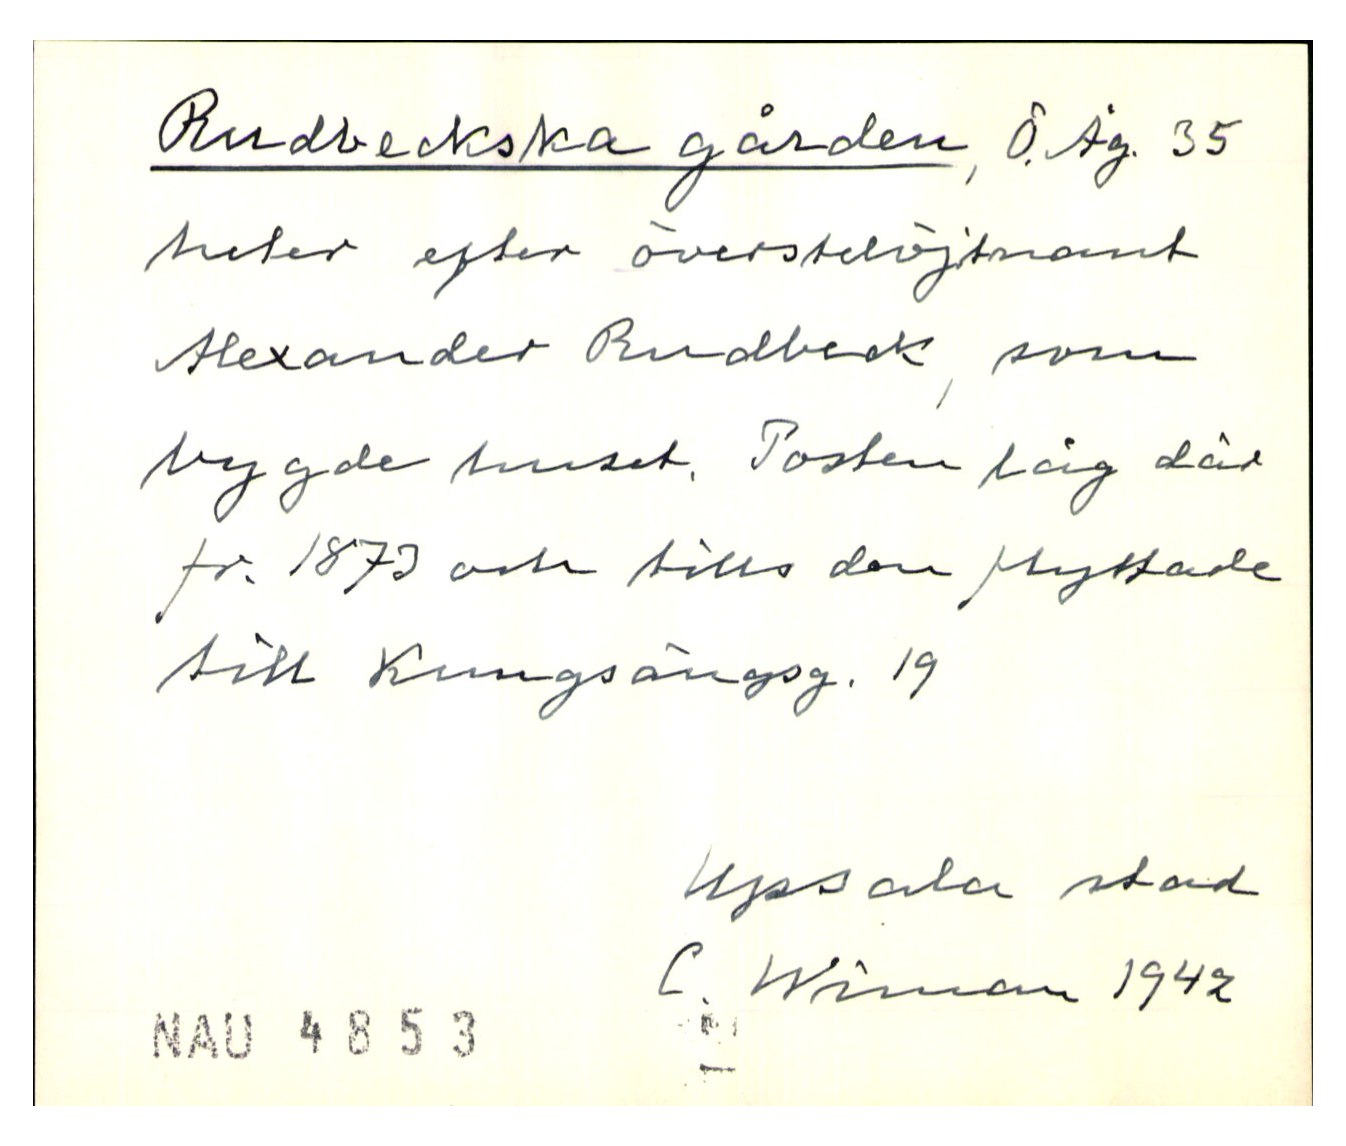 Rudbeckska gården, Ö. Åg. 35
heter efter överstelöjtnant
Alexander Rudbeck, som
bygde huset. Posten låg där
fr. 1873 och tills den flyttade
till Kungsängsg. 19
Upsala stad
C. Wiman 1942
NAU 4853